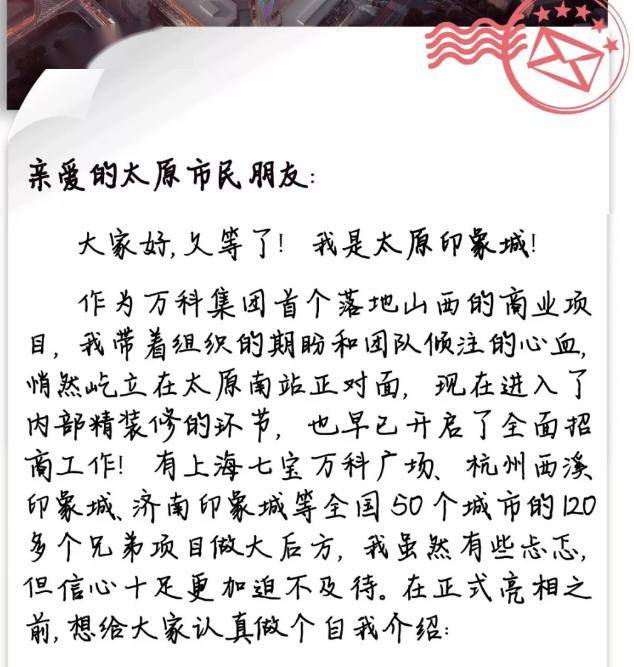 亲爱的太原市民朋友:
大家好,久等了! 我是太原印象城!
作为万科集团首个落地山西的商业项
目, 我带着组织的期盼和团队倾注的心血,
悄然屹立在太原南站正对面, 现在进入了
内部精装修的环节, 也早已开启了全面招
商工作! 有上海七宝万科广场、杭州西溪
印象城、济南印象城等全国50个城市的120
多个兄弟项目做大后方, 我虽然有些忐忑,
但信心十足更加迫不及待。在正式亮相之
前, 想给大家认真做个自我介绍: